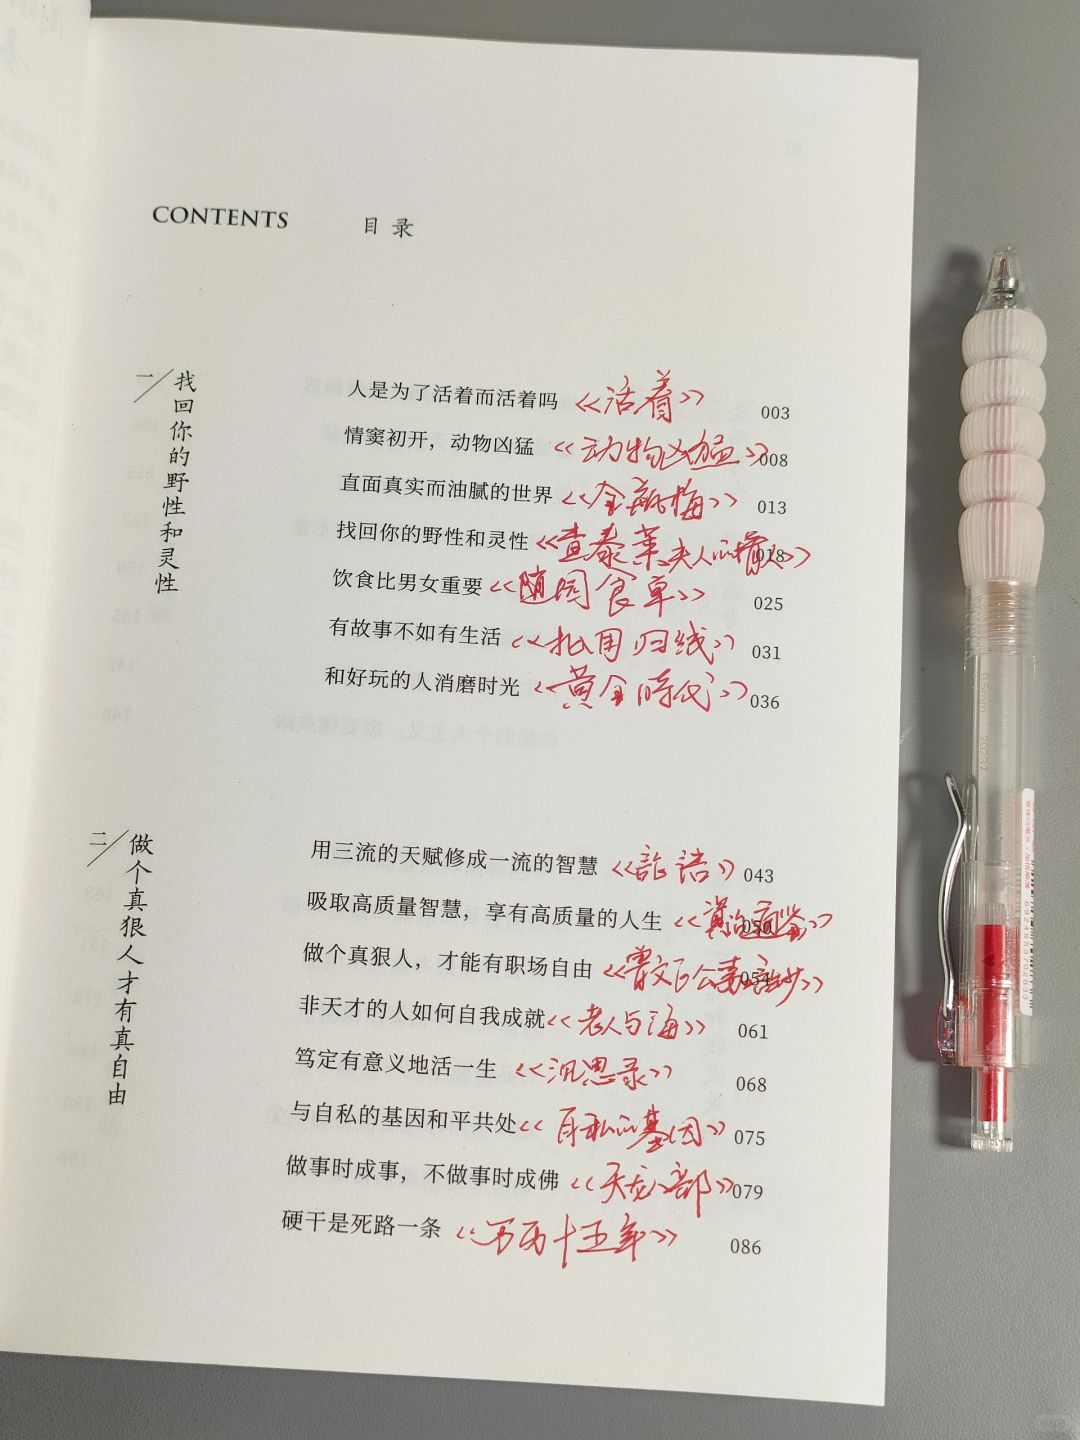 CONTENTS 目录
一/找回你的野性和灵性
人是为了活着而活着吗 《活着》 003
情窦初开，动物凶猛 《动物凶猛》 008
直面真实而油腻的世界 《金瓶梅》 013
找回你的野性和灵性 《查泰莱夫人的情人》 018
饮食比男女重要 《随园食单》 025
有故事不如有生活 《北回归线》 031
和好玩的人消磨时光 《黄金時代》 036
二/做个真狠人才有真自由
用三流的天赋修成一流的智慧 《论语》 043
吸取高质量智慧，享有高质量的人生 《資治通鉴》 050
做个真狠人，才能有职场自由 《曾文正公嘉言钞》 054
非天才的人如何自我成就 《老人与海》 061
笃定有意义地活一生 《沉思录》 068
与自私的基因和平共处 《自私的基因》 075
做事时成事，不做事时成佛 《天龙八部》 079
硬干是死路一条 《万历十五年》 086